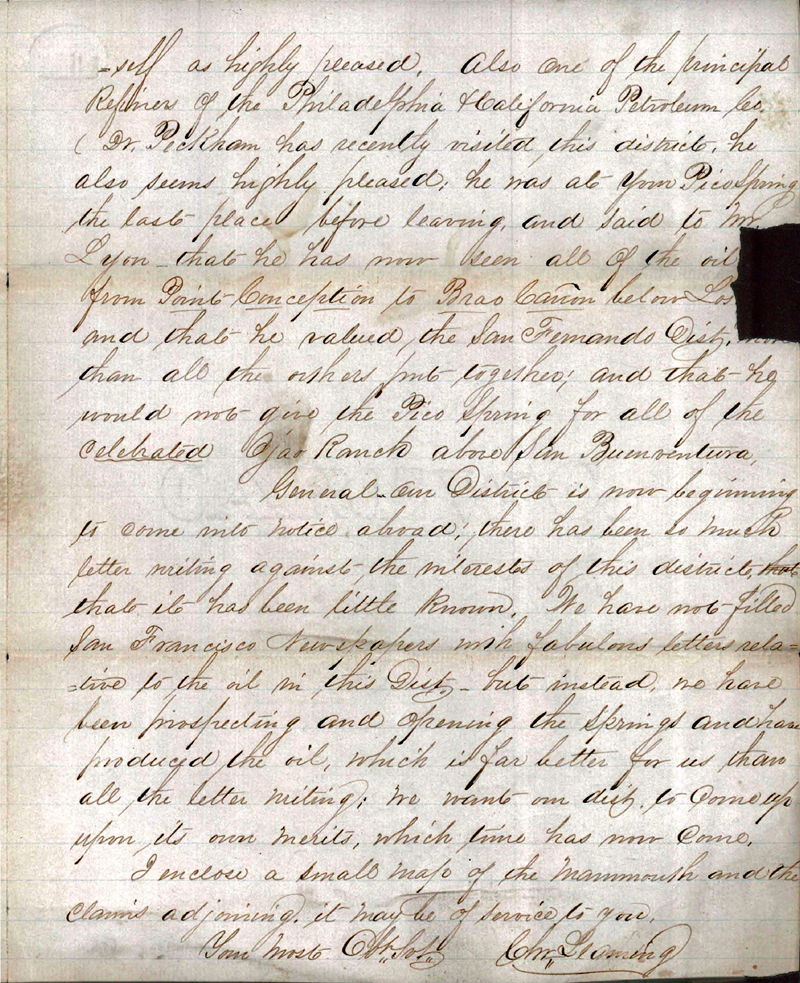 =self as highly pleased. Also one of the principal
Refiners of the Philadelphia & California Petroleum Co.
( Dr. Peckham has recently visited this district, he
also seems highly pleased; he was at your Pico Spring
the last place before leaving, and said to Mr.
Lyon - that he has now seen all of the oil
from Point Conception to Brao Cañon below Los
and that he valued the San Fernando Dist.
than all the others put together; and that he
would not give the Pico Spring for all of the
celebrated Ojao Ranch above San Buenventura,
General - Our District is now beginning
to come into notice abroad; there has been so much
letter writing against the interests of this district,
that it has been little known. We have not filled
San Francisco Newspapers with fabulous letters rela=
=tive to the oil in this Dist, - but instead, we have
been prospecting and opening the Springs and have
produced the oil, which is far better for us than
all the letter writing; we want our dist. to come up
upon its own merits, which time has now come.
I enclose a small map of the Mammouth and the
claims adjoining. it may be of service to you.
Your most Obt. Svt. Chr. Leaming